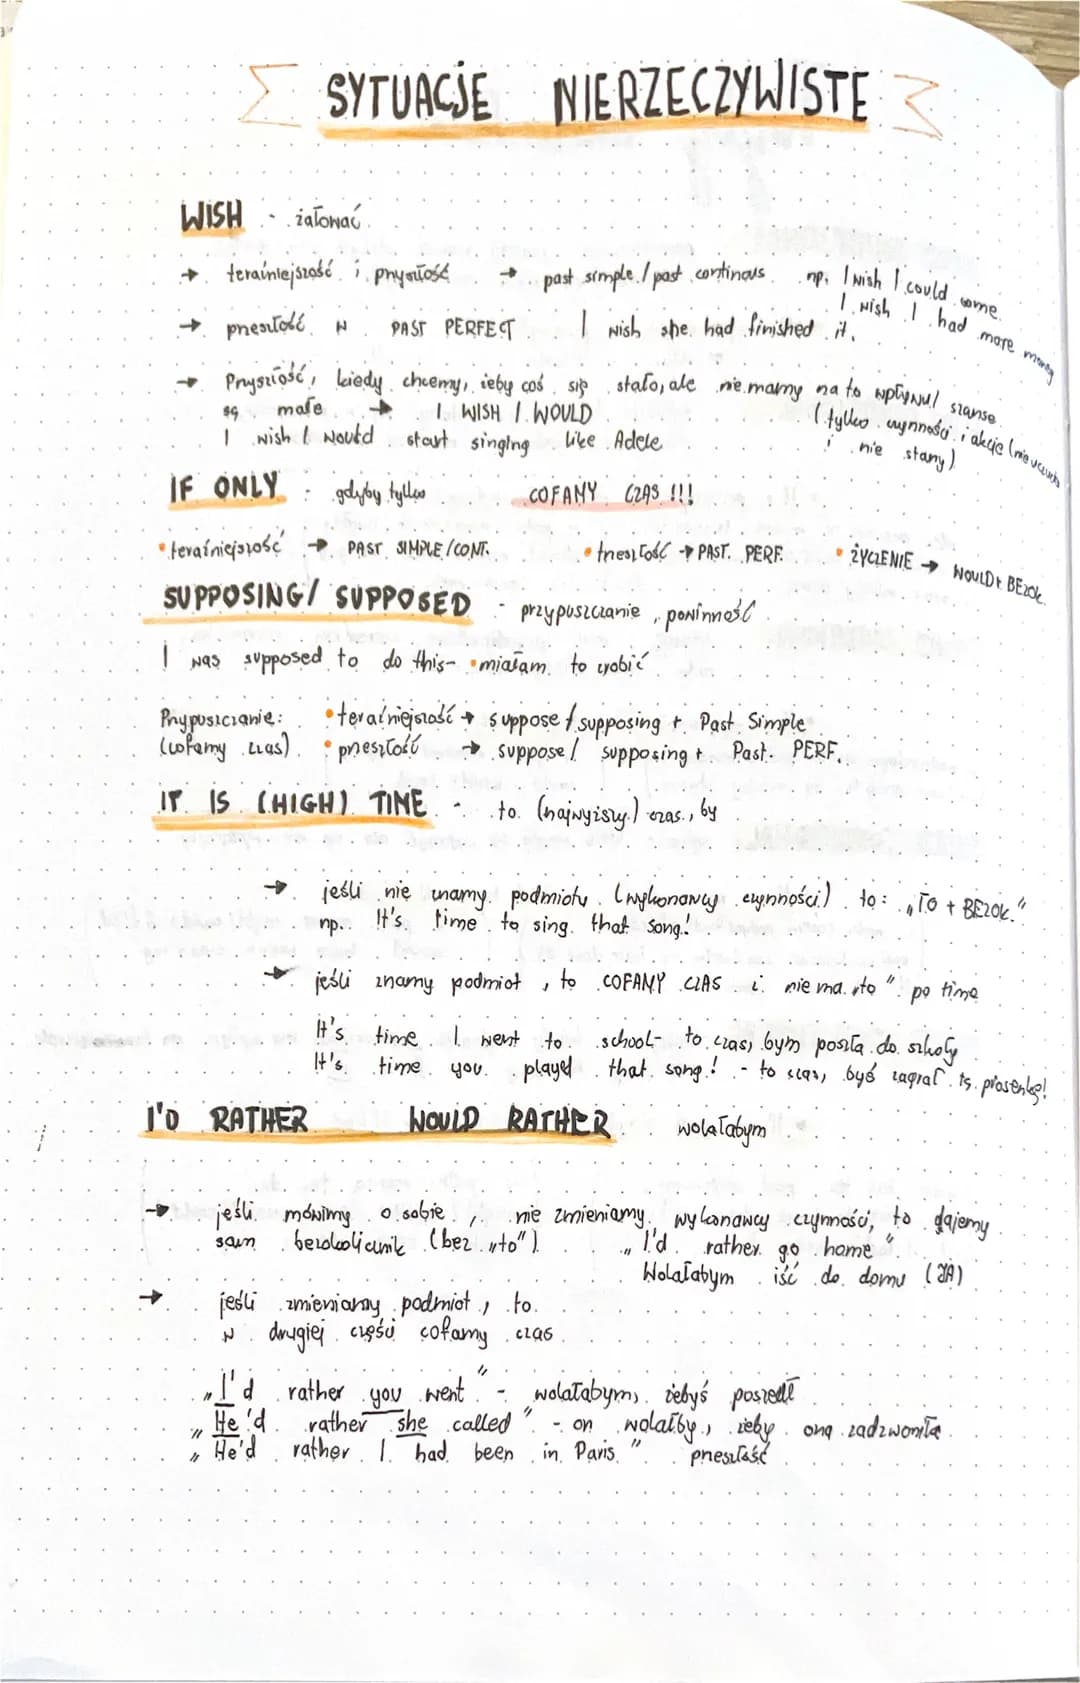 SYTUACJE NIERZECZYWISTE
WISH - żałować
→ teraźniejszość i przyszłość → past simple / past continous np. I wish I could come.
I wish I had more money
→ przeszłość w PAST PERFECT I wish she had finished it.
→ Przyszłość, kiedy chcemy, żeby coś się stało, ale nie mamy na to wpływu / szanse
są małe → I WISH I WOULD (tylko czynności i akcje (nie uczucia
I wish I would start singing like Adele i nie stany)
IF ONLY - gdyby tylko COFAMY CZAS !!!
• teraźniejszość → PAST SIMPLE/CONT. • przeszłość → PAST. PERF. • ŻYCZENIE → WOULD + BEZOK.
SUPPOSING/ SUPPOSED - przypuszczanie, powinność
I was supposed to do this - • miałam to zrobić
Przypuszczanie: • teraźniejszość → suppose / supposing + Past Simple
(cofamy czas) • przeszłość → suppose / supposing + Past. PERF.
IT IS (HIGH) TIME - to (najwyższy) czas, by
→ jeśli nie znamy podmiotu (wykonawcy czynności) to: „TO + BEZOK."
np. It's time to sing that song!
→ jeśli znamy podmiot, to COFAMY CZAS i nie ma „to" po time
It's time I went to school - to czas, bym poszła do szkoły
It's time you played that song! - to czas, byś zagrał tą piosenkę!
I'D RATHER WOULD RATHER wolałabym
→ jeśli mówimy o sobie, nie zmieniamy wykonawcy czynności, to dajemy
sam bezokolicznik (bez „to") „I'd rather go home"
Wolałabym iść do domu (JA)
→ jeśli zmieniamy podmiot, to
w drugiej części cofamy czas
„I'd rather you went" - wolałabym, żebyś poszedł
„He'd rather she called" - on wolałby, żeby ona zadzwoniła
„He'd rather I had been in Paris" przeszłość